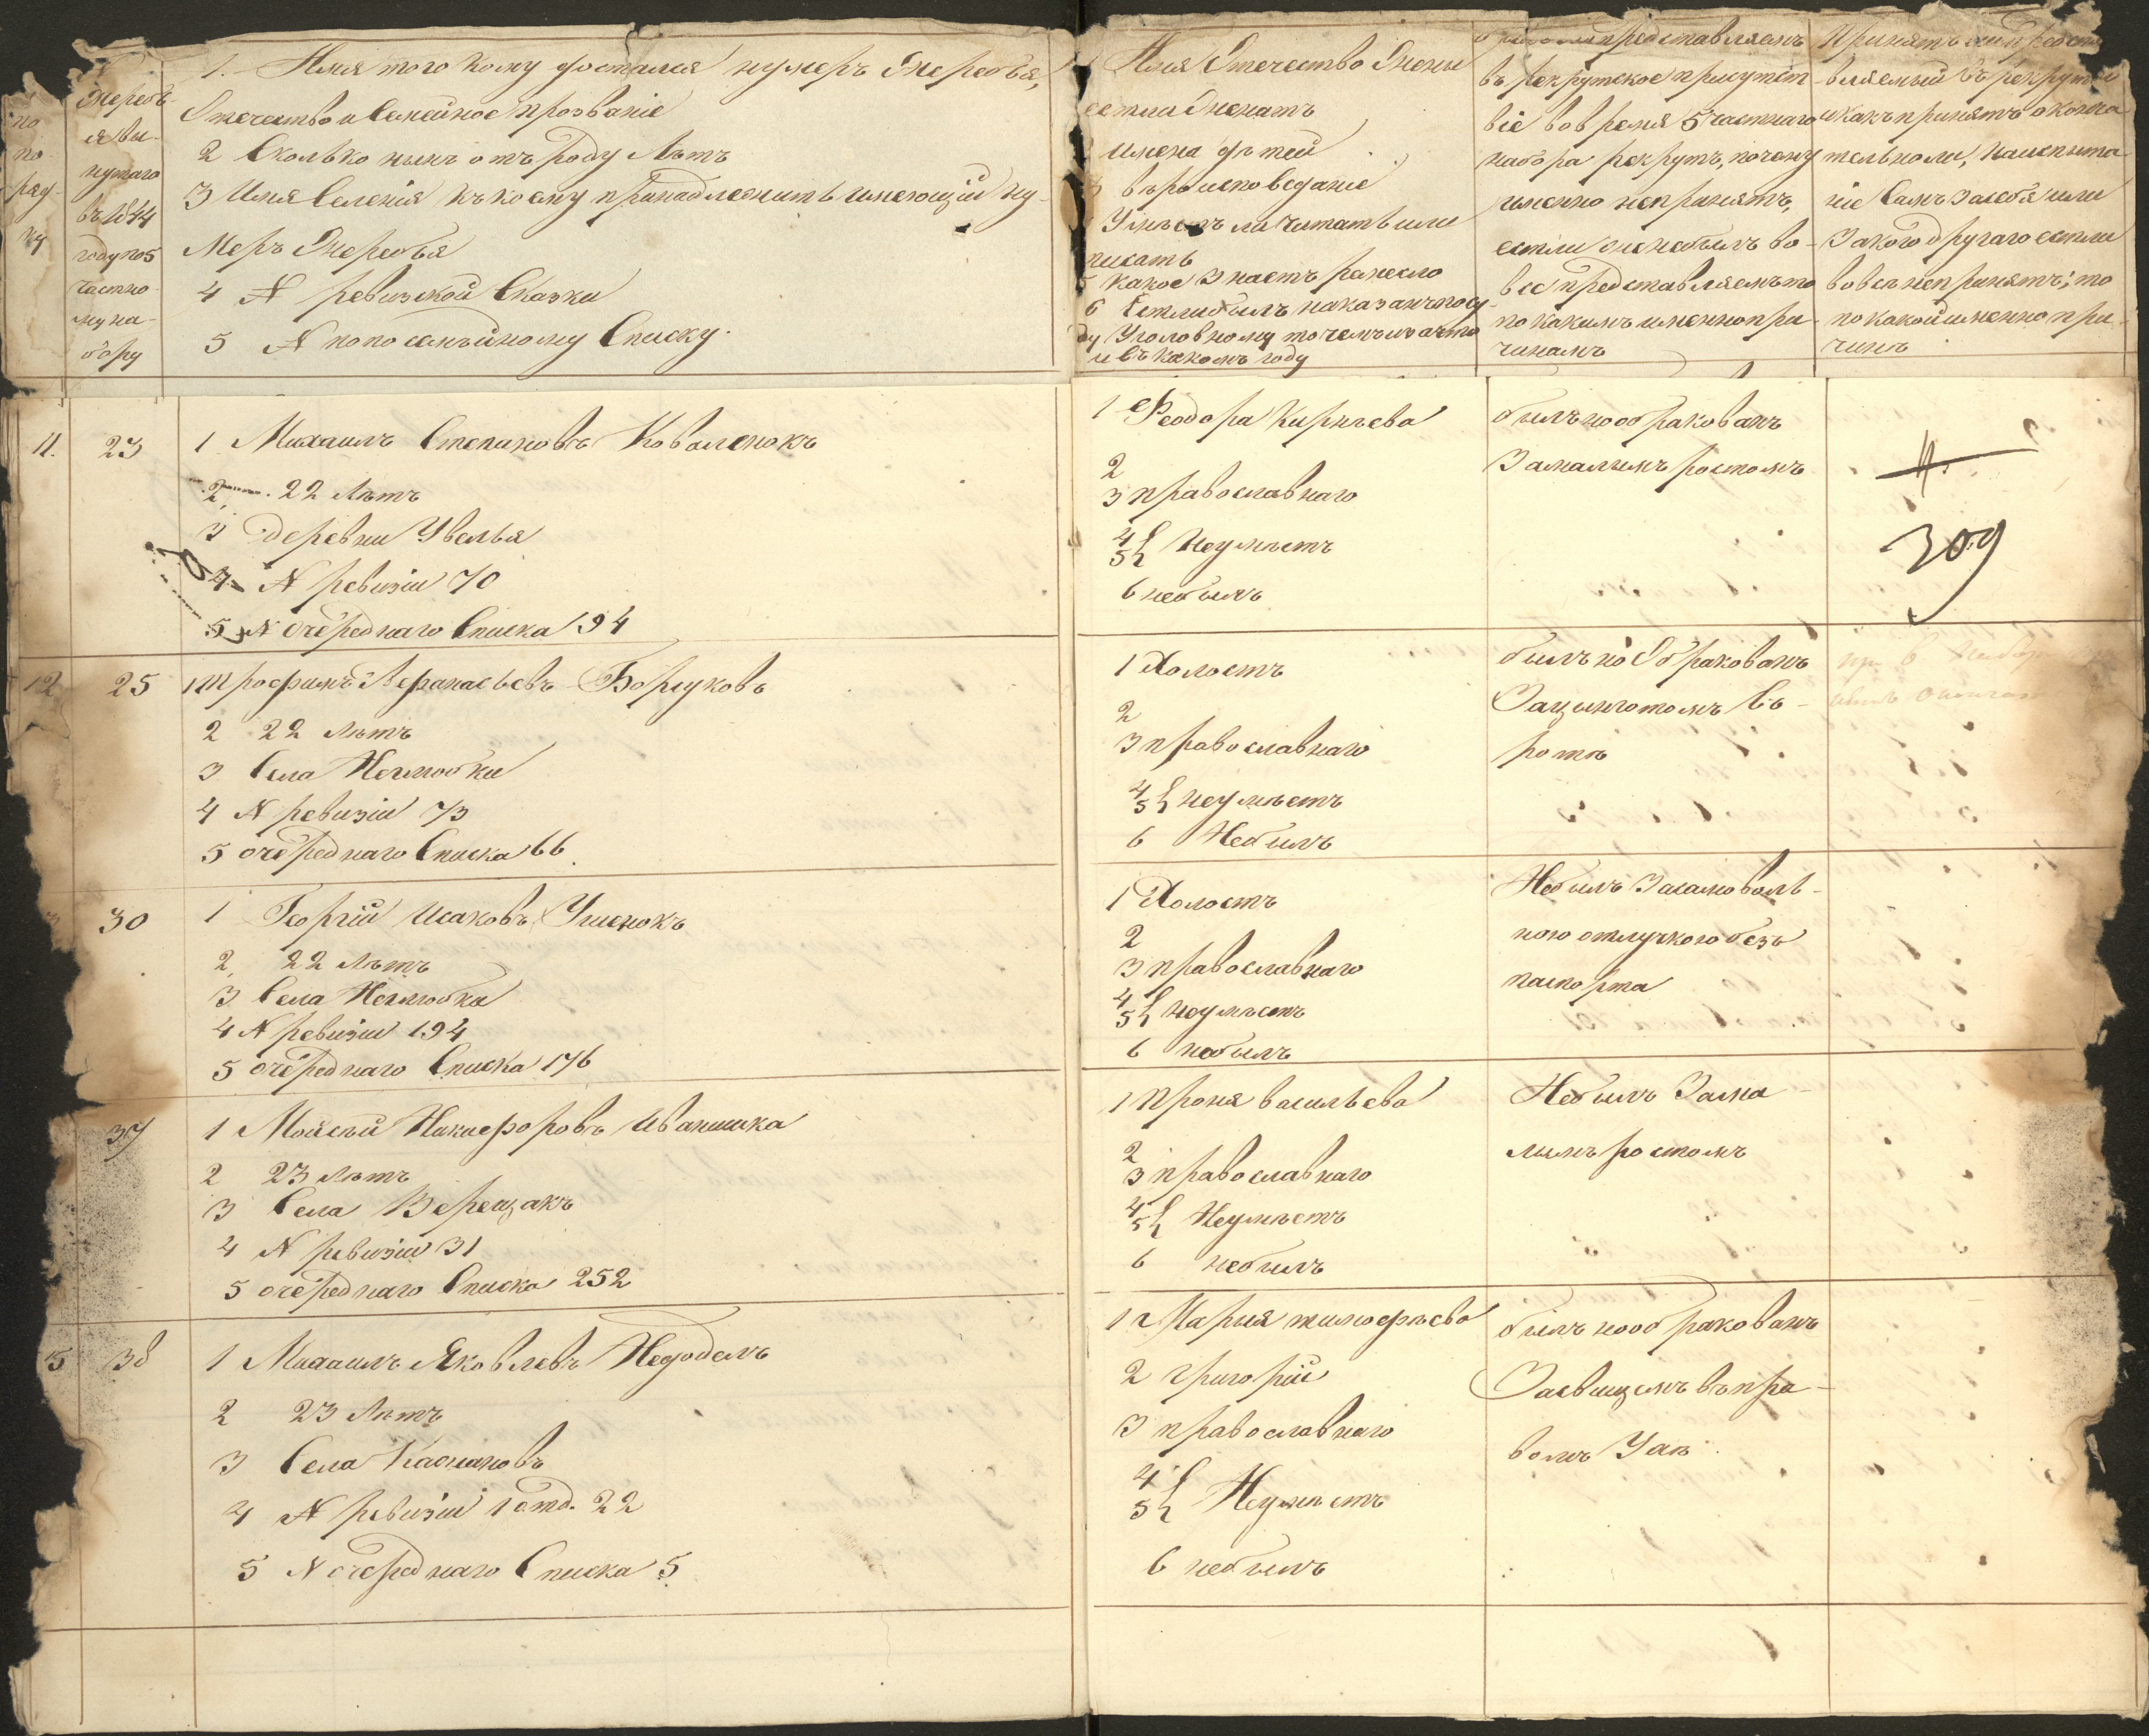 №
по
по
ряд-
ку
Жеребь-
я вы-
нутаго
въ 1844
году по 5
частно-
му на-
бору
1. Имя того кому достался нумеръ Жеребья,
Отечество и Семейное прозваніе
2 Сколько нынѣ отъ роду Лѣтъ
3 Имя Селенія къ коему принадлежитъ имеющій ну-
меръ Жеребья
4 № ревизской Сказки
5 № по посемѣйному Списку.
Имя Отечество Жены
естли Женатъ
2 имена дѣтей
3 вѣроисповеданіе
4 Умѣетъ ли Читать или
писать
5 Какое Знаетъ ремесло
6 Естли былъ наказанъ по су-
ду Уголовному то чемъ за что
и въ какомъ году
представляемъ
въ рекрутское присутст-
віе во время 5 частнаго
набора рекрутъ, почему
именно непринятъ,
естли же небылъ во-
все представляемъ то
по какимъ именно при-
чинамъ
Принятъ ли предста-
вляемый въ рекруты
и какъ принятъ оконча-
тельно ли, на испыта-
ніе Самъ За себя или
За кого другаго естли
вовсѣ непринятъ; то
по какой именно при-
чинѣ
11. 23
1 Михаилъ Степановъ Коваленокъ
2, 22 Лѣтъ
3 деревни Увелья
4 № ревизіи 70
5 № очереднаго Списка 194
1 Феодора Кирѣева
2
3 православнаго
4
5 Неумѣетъ
6 небылъ
былъ но обракованъ
За малымъ ростомъ
11.
309
12 25
1 трофимъ Афанасьевъ Борсуковъ
2 22 Лѣтъ
3 Села Неглюбки
4 № ревизіи 73
5 очереднаго Списка 66
1 Холостъ
2
3 православнаго
4
5 неумѣетъ
6 Небылъ
былъ но Обракованъ
За цынготомъ Въ-
ротѣ
30
1 Георгій Исаковъ Ушенокъ
2, 22 Лѣтъ
3 Села Неглюбка
4 № ревизіи 194
5 очереднаго Списка 176
1 Холостъ
2
3 православнаго
4
5 неумѣетъ
6 небылъ
Небылъ За самоволь-
ною отлучкою безъ
паспорта
37
1 Мойсѣй Никифоровъ Иванишка
2 23 Лѣтъ
3 Села Верещакъ
4 № ревизіи 31
5 очереднаго Списка 252
1 Проня васильева
2
3 православнаго
4
5 Неумѣетъ
6 небылъ
Небылъ За ма-
лымъ ростомъ
15 38
1 Михаилъ Яковлевъ Недодемъ
2 23 Лѣтъ
3 Села Касмановъ
4 № ревизіи 1 отд. 22
5 № очереднаго Списка 5
1 Марія тимофѣева
2 григорій
3 православнаго
4
5 Неумѣетъ
6 небылъ
былъ но обракованъ
За свищемъ въ пра-
вомъ Ухѣ